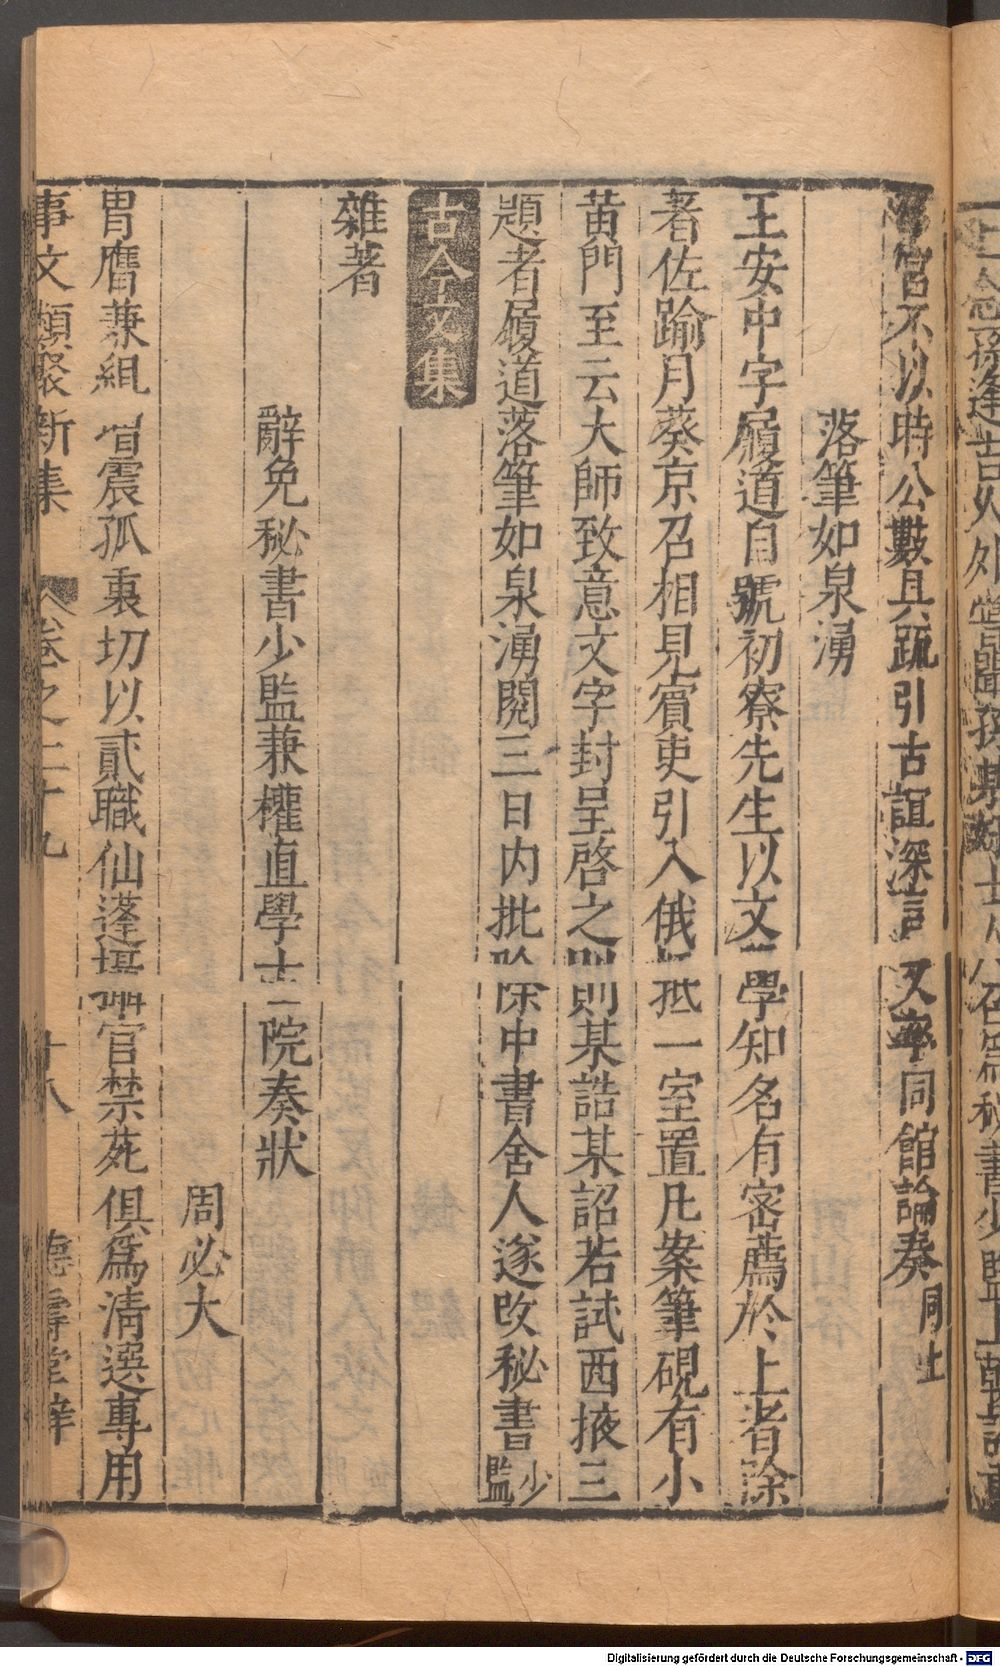 宮不以時公數具疏引古誼深言又率同館論奏同上
落筆如泉湧
王安中字履道自號初寮先生以文學知名有密薦於上者除
著佐踰月蔡京召相見賓吏引入俄抵一室置几案筆硯有小
黃門至云大師致意文字封呈啓之則某誥某詔若試西掖三
題者履道落筆如泉湧閱三日内批除中書舍人遂改秘書少監
古今文集
雜著
辭免秘書少監兼權直學士院奏狀
周必大
冒膺兼組 震孤衷切以貳職仙蓬攝官禁苑俱爲清選專用
事文類聚新集 卷之二十九 十八 德壽堂梓
Digitalisierung gefördert durch die Deutsche Forschungsgemeinschaft - DFG